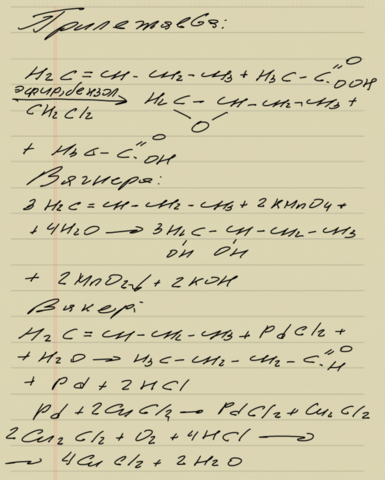 Прилежаева:
H₂C=CH-CH₂-CH₃ + H₃C-C=O OOH
эфир, бензол → H₂C-CH-CH₂-CH₃ +
CH₂Cl₂
O
+ H₃C-C=O OH
Вагнера:
3H₂C=CH-CH₂-CH₃ + 2KMnO₄ +
+ 4H₂O → 3H₂C-CH-CH₂-CH₃
OH OH
+ 2MnO₂↓ + 2KOH
Вакер:
H₂C=CH-CH₂-CH₃ + PdCl₂ +
+ H₂O → H₃C-CH₂-CH₂-C=O H
+ Pd + 2HCl
Pd + 2CuCl₂ → PdCl₂ + Cu₂Cl₂
2Cu₂Cl₂ + O₂ + 4HCl →
→ 4CuCl₂ + 2H₂O